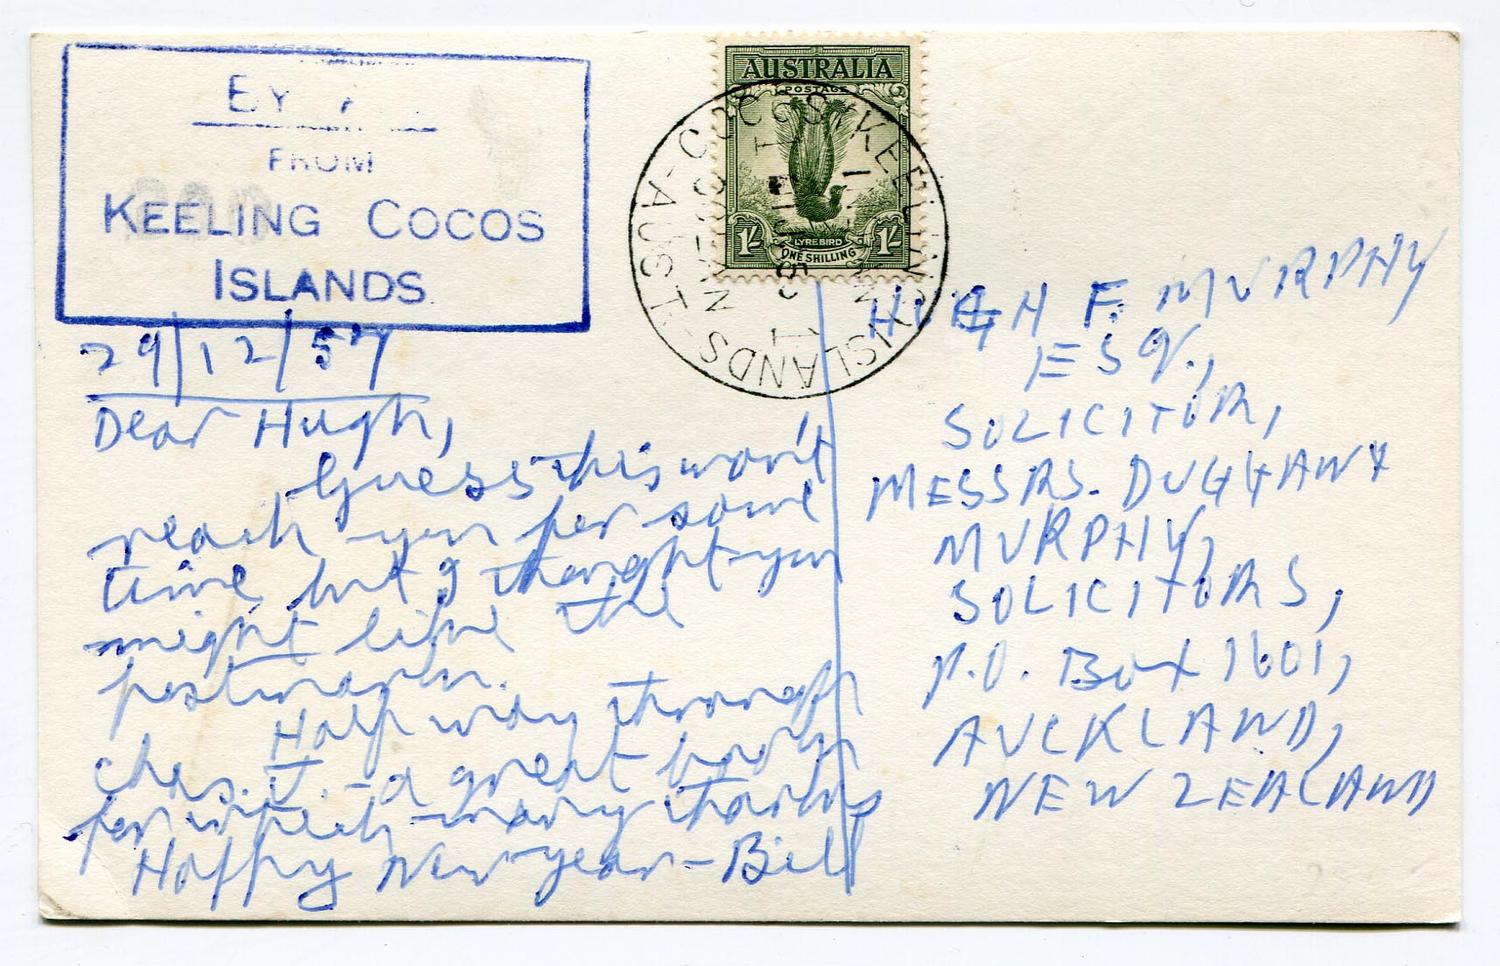 BY AIR
FROM
KEELING COCOS
ISLANDS
AUSTRALIA
POSTAGE
1/- 1/-
LYREBIRD
ONE SHILLING
COCOS KEELING ISLANDS
AUST
29/12/57
Dear Hugh,
Guess this won't
reach you for some
time but I thought you
might like the
postmark.
Half way through
Chas. J. - a great book
for which many thanks
Happy New year - Bill
HUGH F. MURPHY
ESQ.,
SOLICITOR,
MESSRS.
MURPHY,
SOLICITORS,
P.O. Box 1601,
AUCKLAND,
NEW ZEALAND